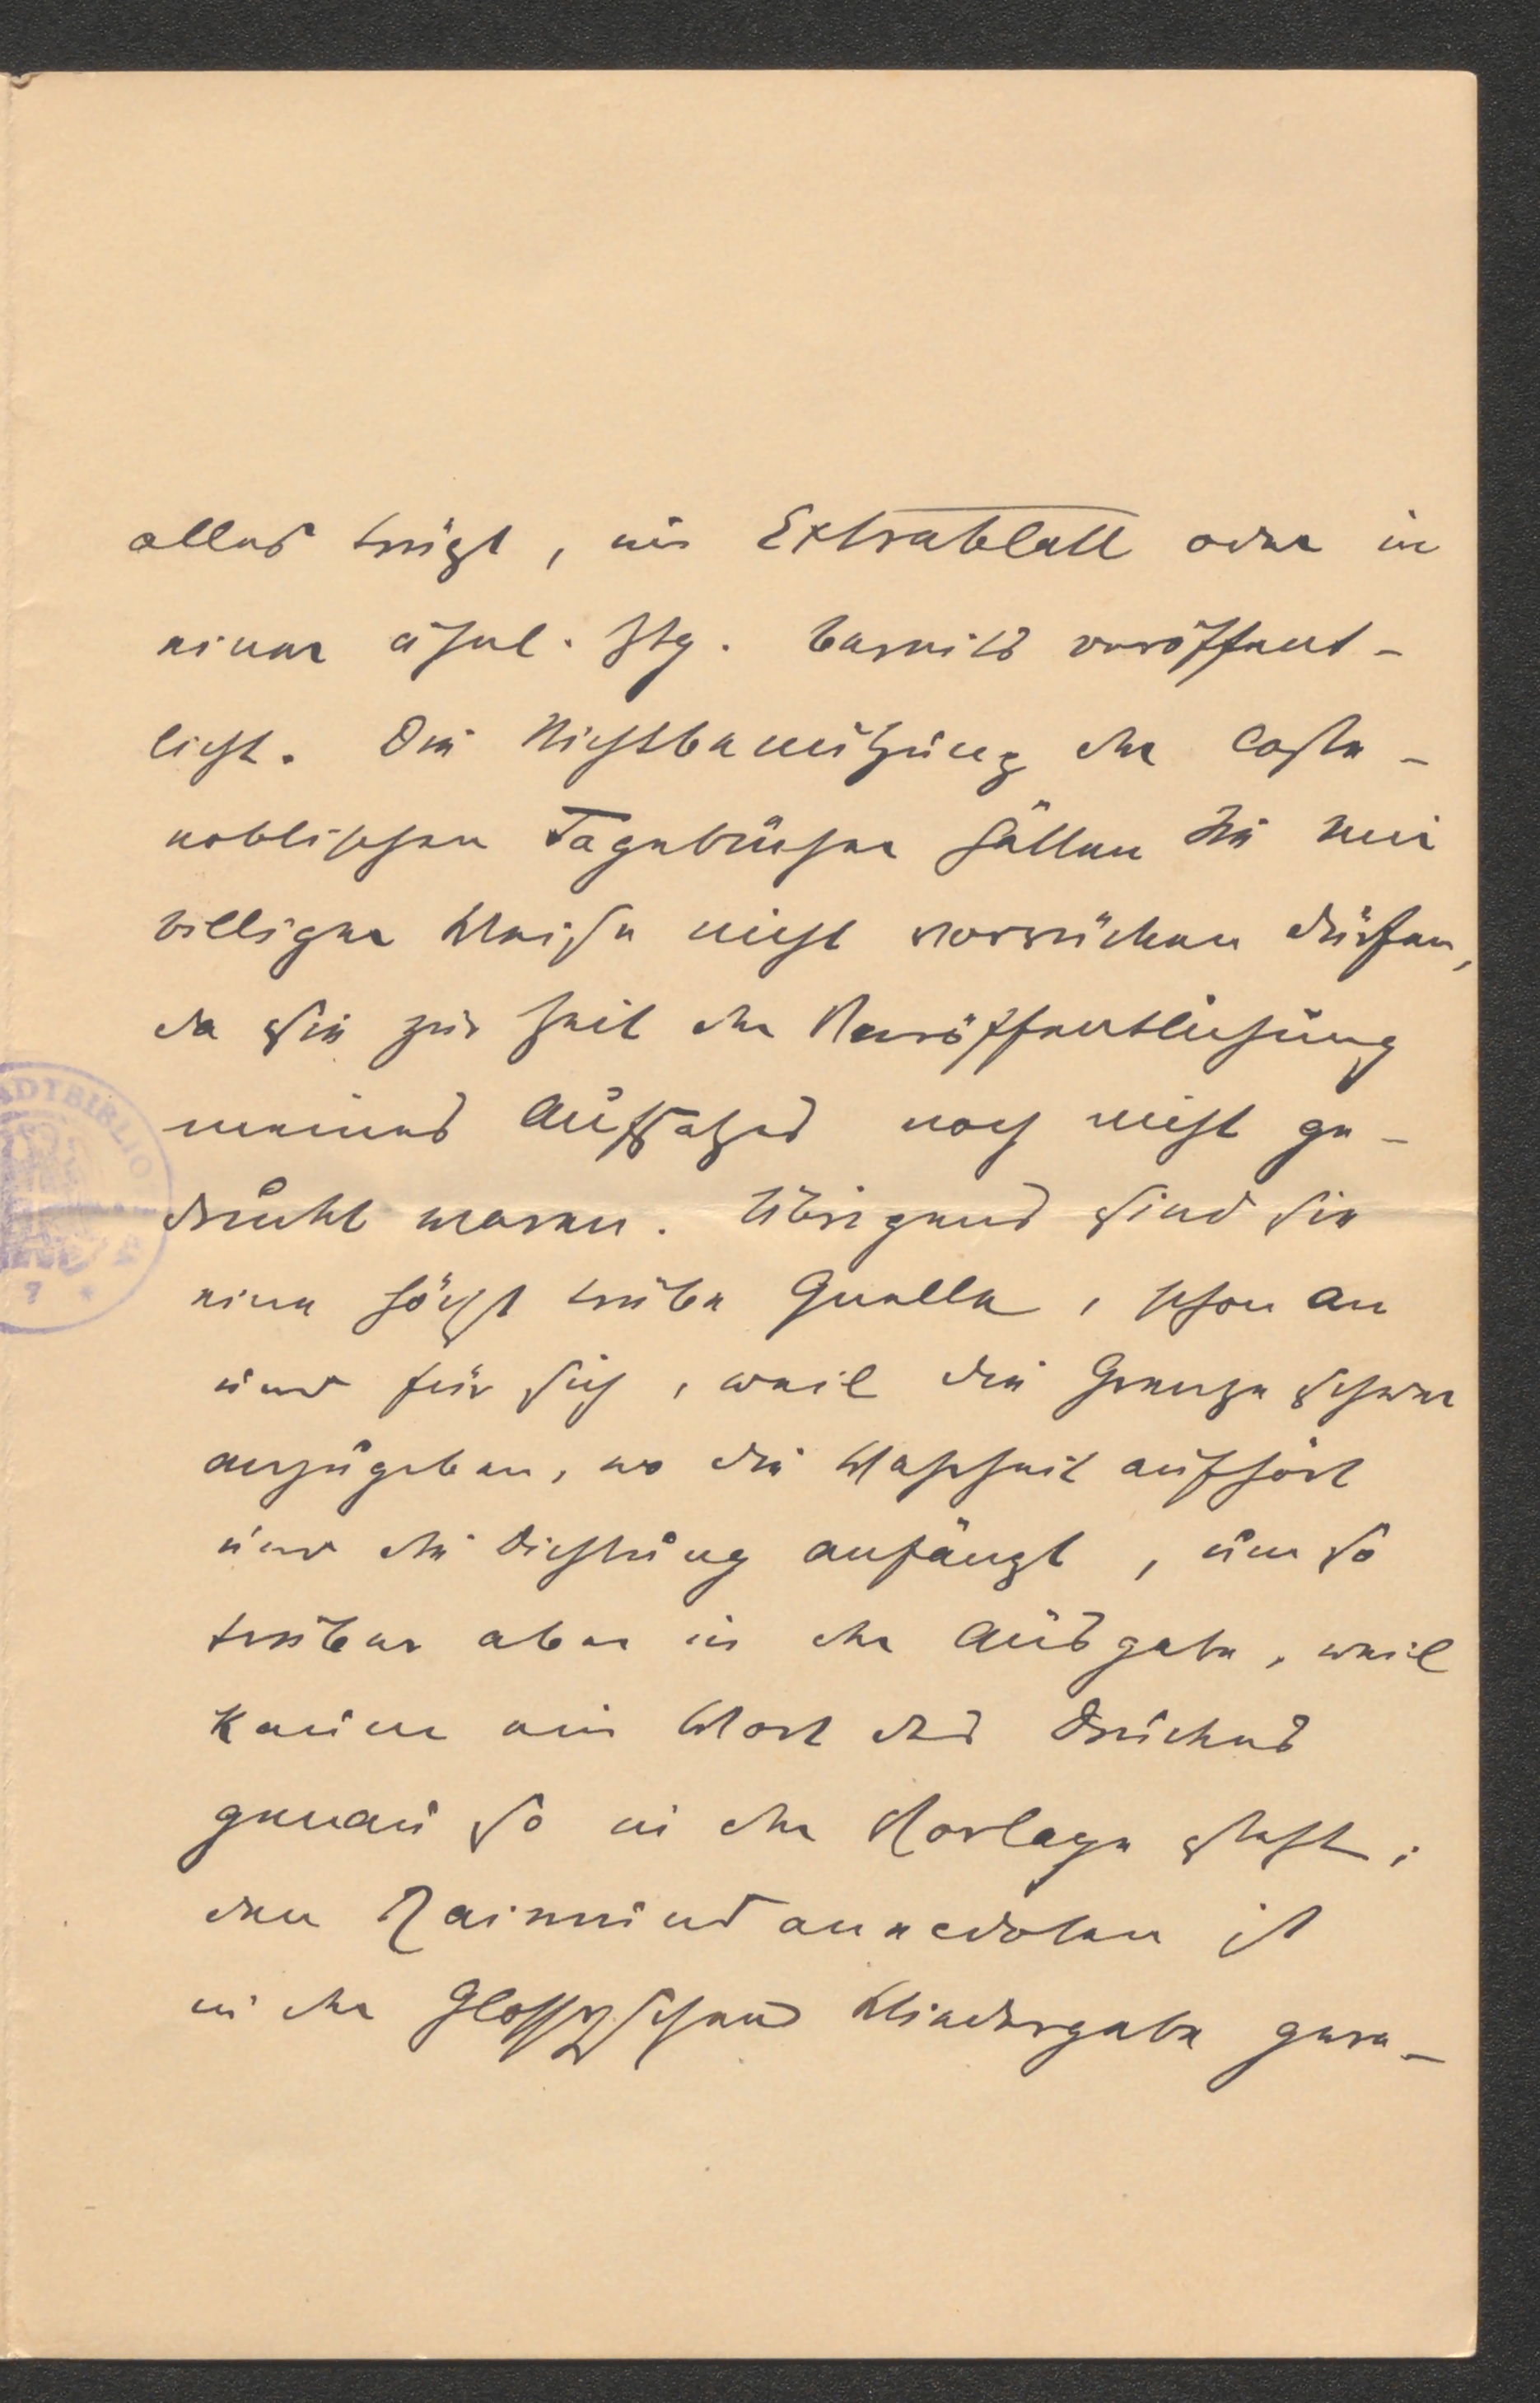 alles trügt, im Extrablatt oder in
einer ähnl. Ztg. bereits veröffent-
licht. Die Nichtbenützung der Coste-
noblischen Tagebücher hätten Sie mir
billiger Weise nicht vorrücken dürfen,
da sie zur Zeit der Veröffentlichung
meines Aufsatzes noch nicht ge-
druckt waren. Übrigens sind sie
eine höchst trübe Quelle, schon an
und für sich, weil die Grenze schwer
anzugeben, wo die Wahrheit aufhört
und die Dichtung anfängt, um so
trüber aber in der Ausgabe, weil
kaum ein Wort des Druckes
genau so in der Vorlage steht;
den Raimundanecdoten ist
in der Glossyschen Wiedergabe gera-
STADTBIBLIO